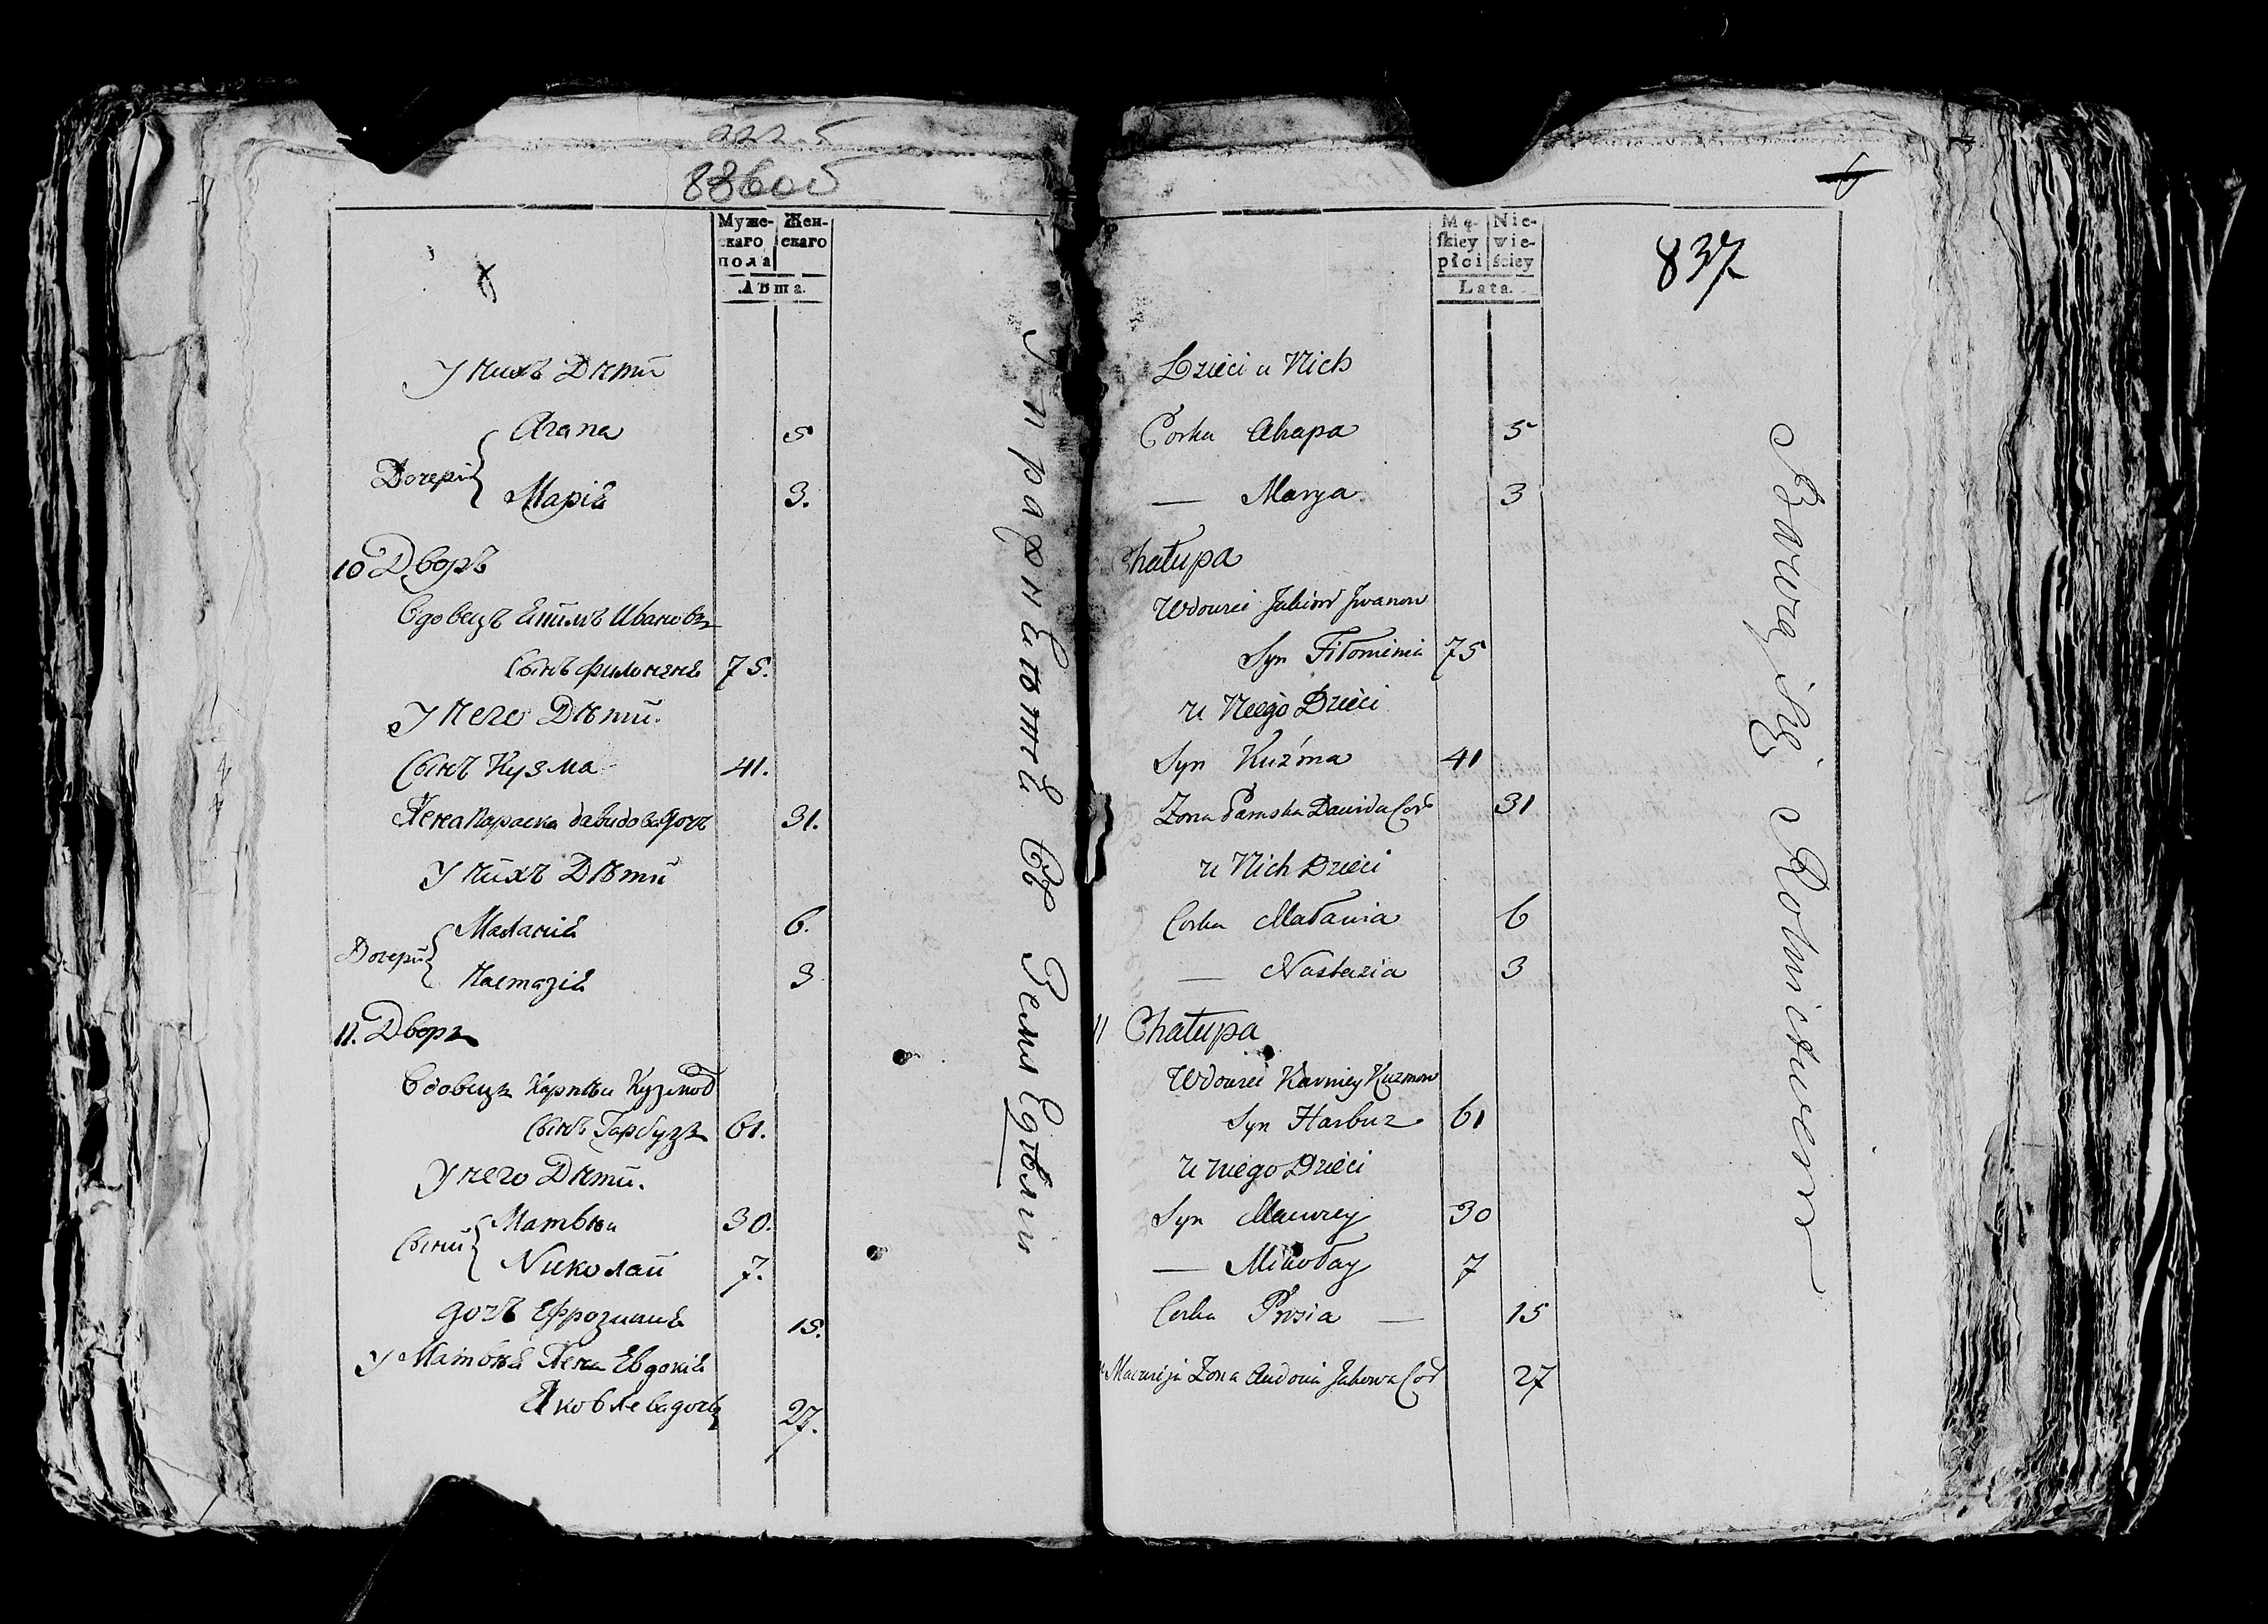 836 об
Муже-
скаго
пола
Жен-
скаго
Лѣта.
У нихъ Дѣти
Агапа 5
Дочери
Марія 3.
10 Дворъ
Вдовецъ Иванов
Сынъ 75.
У него Дѣти.
Сынъ Кузма 41.
Жена Параска давидова дочь 31.
У нихъ Дѣти
Маланія 6.
Дочери
Настазія 3
11. Дворъ
Вдовецъ Карпѣи Кузмов
Сынъ Гарбузъ 61.
У него Дѣти.
Матвѣи 30.
Сыни
Николай 7.
дочь Ефрозинія 15.
У Матвѣя Жена Евдокія
Яковлева дочь 27.
837
Mę-
skiey
płci
Nie-
wie-
ściey
Lata.
Dzieci u Nich
Corka Ahapa 5
— Marya 3
Chałupa
Wdowiec Jwanow
Syn 75
u Niego Dzieci
Syn Kuźma 41
Zona Paraska Dawida Cor 31
u Nich Dzieci
Corka Małania 6
— Nastazia 3
11 Chałupa
Wdowiec Karniey Kuzmow
Syn Harbuz 61
u niego Dzieci
Syn Maciwiey 30
— Mikołay 7
Corka Prosia — 15
Zona Audocia Jakowa Cor 27
Rotmistrz